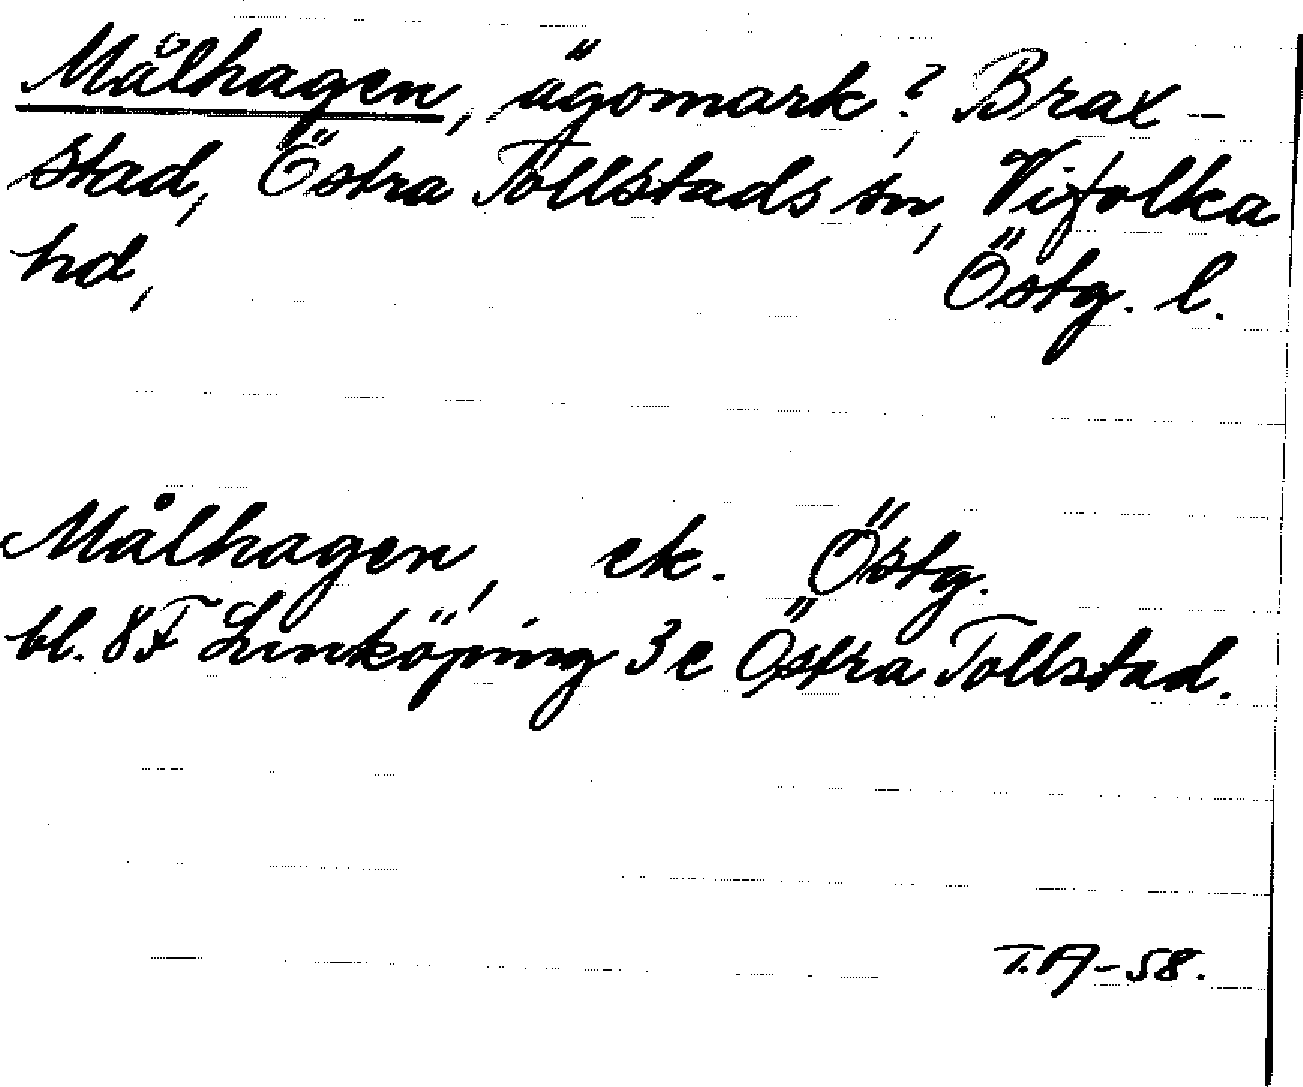 Målhagen, ägomark?, Brax-
stad, Östra Tollstads sn, Vifolka
hd, Östg. l.
Målhagen, ek. Östg.
bl. 8F Linköping 3e Östra Tollstad.
T.A-58.